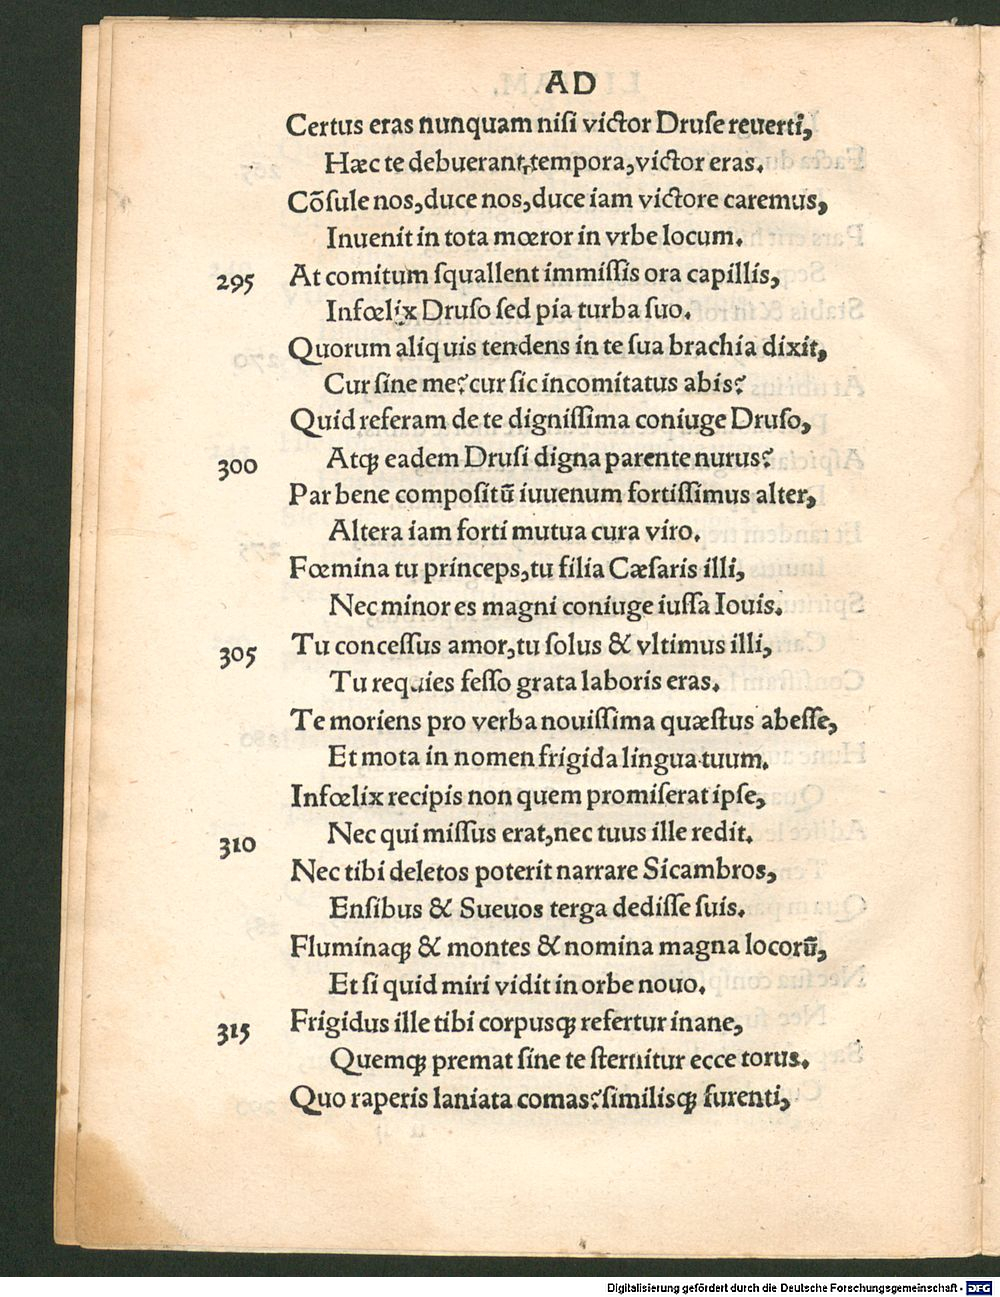 AD
Certus eras nunquam nisi victor Druse reuerti,
Hæc te debuerant tempora, victor eras.
Cõsule nos, duce nos, duce iam victore caremus,
Inuenit in tota mœror in vrbe locum.
295 At comitum squallent immissis ora capillis,
Infœlix Druso sed pia turba suo.
Quorum aliquis tendens in te sua brachia dixit,
Cur sine me? cur sic incomitatus abis?
Quid referam de te dignissima coniuge Druso,
300 Atq; eadem Drusi digna parente nurus?
Par bene compositũ iuuenum fortissimus alter,
Altera iam forti mutua cura viro.
Fœmina tu princeps, tu filia Cæsaris illi,
Nec minor es magni coniuge iussa Iouis.
305 Tu concessus amor, tu solus & vltimus illi,
Tu requies fesso grata laboris eras.
Te moriens pro verba nouissima quæstus abesse,
Et mota in nomen frigida lingua tuum.
Infœlix recipis non quem promiserat ipse,
310 Nec qui missus erat, nec tuus ille redit.
Nec tibi deletos poterit narrare Sicambros,
Ensibus & Sueuos terga dedisse suis.
Fluminaq; & montes & nomina magna locorũ,
Et si quid miri vidit in orbe nouo.
315 Frigidus ille tibi corpusq; refertur inane,
Quemq; premat sine te sternitur ecce torus.
Quo raperis laniata comas? similisq; furenti,
Digitalisierung gefördert durch die Deutsche Forschungsgemeinschaft - DFG